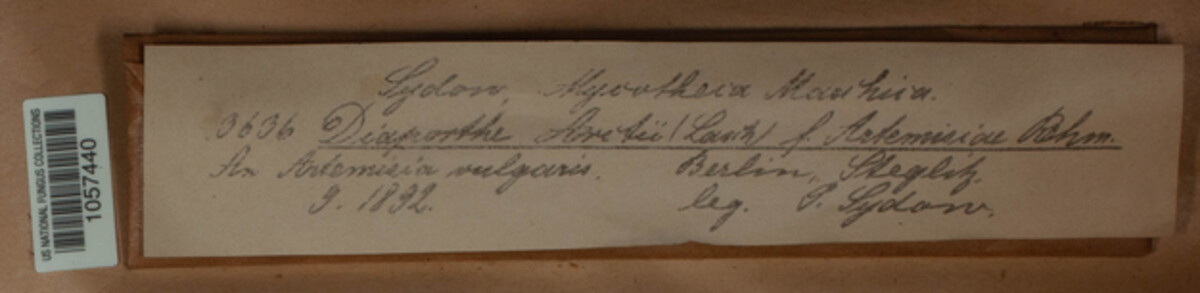 Sydow, Mycotheca Marchica.
3636 Diaporthe Arctii (Lasch) f. Artemisiae Rehm.
An Artemisia vulgaris. Berlin, Steglitz.
9. 1892. leg. P. Sydow.
US NATIONAL FUNGUS COLLECTIONS
1057440